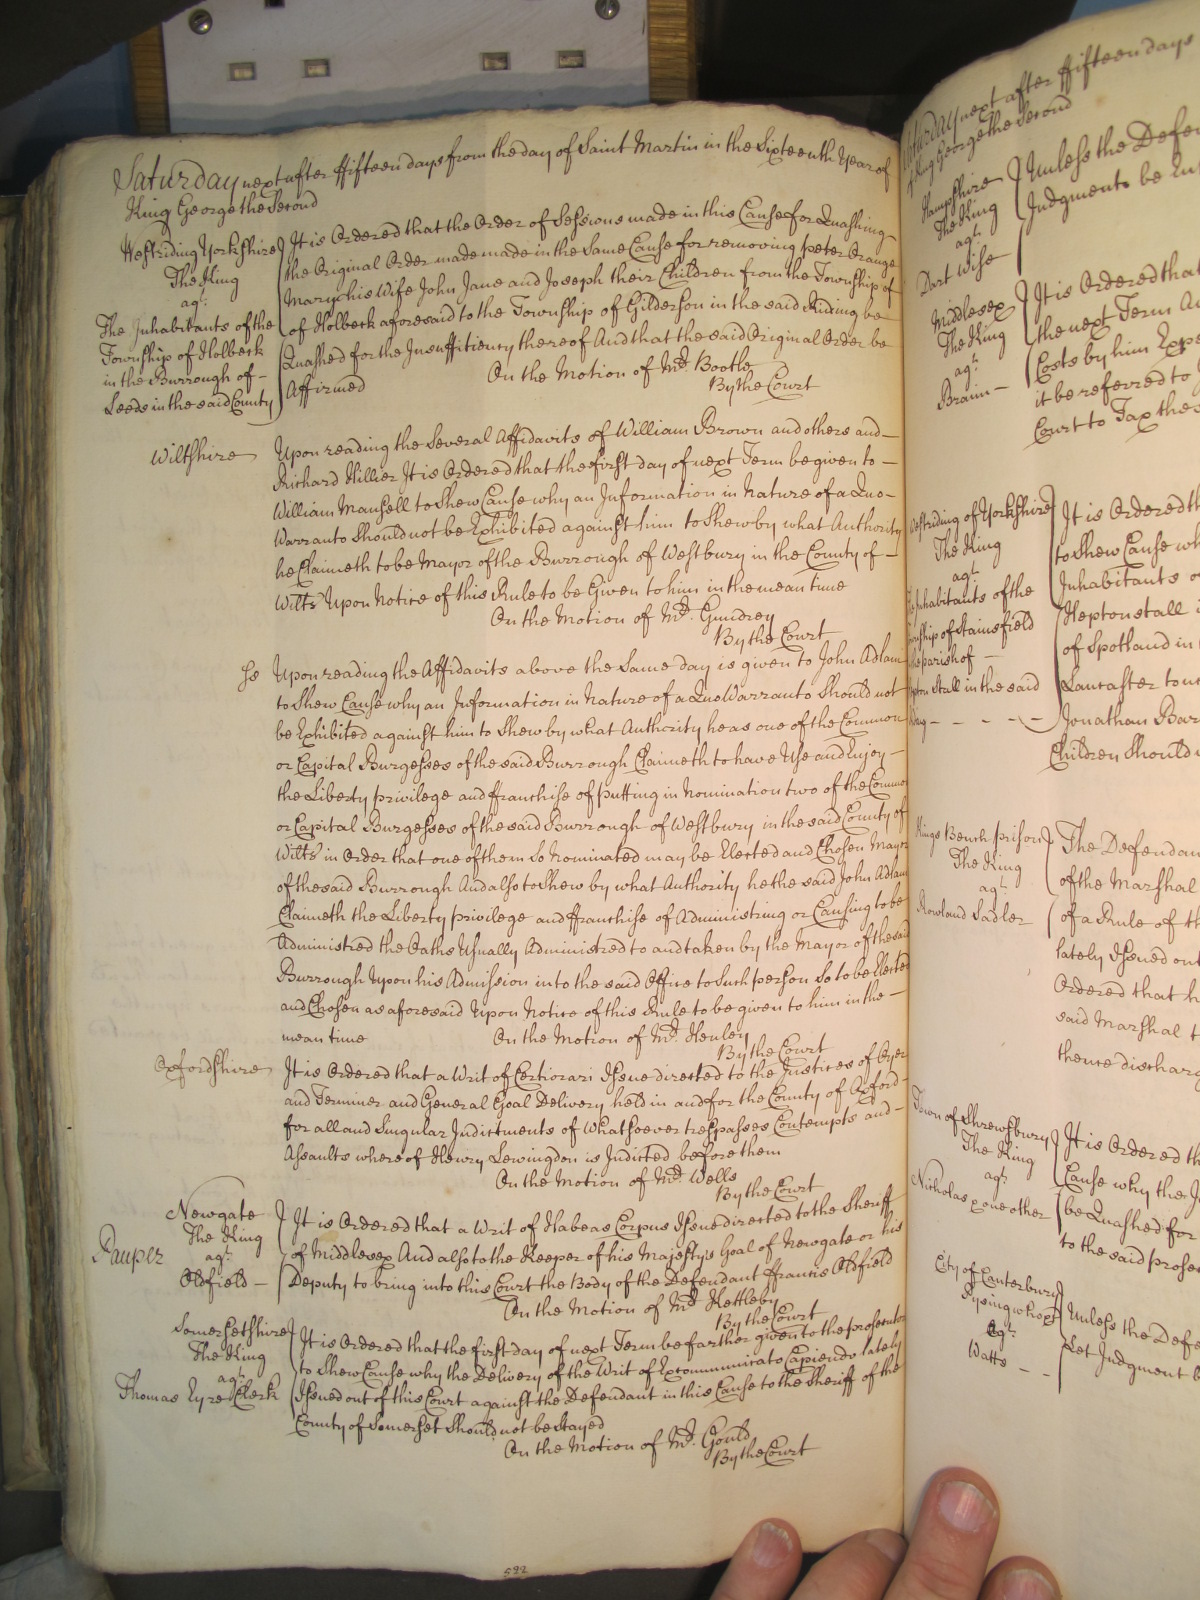 Saturday next after ffifteen days from the day of Saint Martin in the Sixteenth Year of
King George the Second
Westriding Yorkshire
The King
agt.
The Inhabitants of the
Township of Holbeck
in the Burrough of –
Leeds in the said County
It is Ordered that the Order of Sessions made in this Cause for Quashing
the Original Order made made in the Same Cause for removing peter Orange
Mary his Wife John Jane and Joseph their Children from the Township of
of Holbeck aforesaid to the Township of Gilderson in the said Riding be
Quashed for the Insuffitiency thereof And that the said Original Order be
Affirmed
On the Motion of Mr. Bootle
By the Court
Wiltshire
Upon reading the Several Affidavits of William Brown and others and –
Richard Hillier It is Ordered that the first day of next Term be given to –
William Mansell to Shew Cause why an Information in Nature of a Quo –
Warranto Should not be Exhibited against him to Shew by what Authority
he Claimeth to be Mayor of the Burrough of Westbury in the County of –
Wilts Upon Notice of this Rule to be Given to him in the mean time
On the Motion of Mr. Gundrey
By the Court
Ss
Upon reading the Affidavits above the Same day is given to John Adlam
to Shew Cause why an Information in Nature of a Quo Warranto Should not
be Exhibited against him to Shew by what Authority he as one of the Common
or Capital Burgesses of the said Burrough Claimeth to have Use and Enjoy –
the Liberty privilege and ffranchise of putting in Nomination two of the Common
or Capital Burgesses of the said Burrough of Westbury in the said County of
Wilts in Order that one of them So Nominated may be Elected and Chosen Mayor
of the said Burrough And also to Shew by what Authority he the said John Adlam
Claimeth the Liberty privilege and ffranchise of Administring or Causing to be
Administred the Oaths Usually Administred to and taken by the Mayor of the said
Burrough Upon his Admission into the said Office to Such person So to be Elected
and Chosen as aforesaid Upon Notice of this Rule to be given to him in the –
mean time
On the Motion of Mr. Henley
By the Court
Oxfordshire
It is Ordered that a Writ of Certiorari Issue directed to the Justices of Oyer
and Terminer and General Goal Delivery held in and for the County of Oxford
for all and Singular Indictments of Whatsoever trespasses Contempts and –
Assaults whereof Henry Lewingdon is Indicted before them
On the Motion of Mr. Wells
By the Court
Newgate
The King
Pauper agt.
Oldfield –
It is Ordered that a Writ of Habeas Corpus Issue directed to the Sheriff
of Middlesex And also to the Keeper of his Majestys Goal of Newgate or his
Deputy to bring into this Court the Body of the Defendant ffrancis Oldfield
On the Motion of Mr. Kettleby
By the Court
Somersetshire
The King
agt.
Thomas Eyre Clerk
It is Ordered that the first day of next Term be farther given to the prosecutor
to Shew Cause why the Delivery of the Writ of Excommunicato Capiendo lately
Issued out of this Court against the Defendant in this Cause to the Sheriff of the
County of Somerset Should not be Stayed
On the Motion of Mr. Gould
By the Court
592
Saturday next after ffifteen days
King George the Second
Hampshire
The King
agt.
Dart Wise
Unless the Defen
Judgment be En
Middlesex
The King
agt.
Braun –
It is Ordered that
the next Term
Costs by him Expe
it be referred to
Court to Tax the
Westriding of Yorkshire
The King
agt.
Inhabitants of the
Township of Stainsfield
the parish of –
Stall in the said
It is Ordered th
to Shew Cause wh
Inhabitants o
Heptonstall
of Spotland in
Lancaster to
Jonathan Bar
Children Should
Kings Bench prison
The King
agt.
Rowland Sadler
The Defendan
of the Marshal
of a Rule of th
lately Issued out
Ordered that h
said Marshal t
thence discharg
Town of Shrewsbury
The King
agt.
Nicholas one other
It is Ordered th
Cause why the
be Quashed for
to the said prose
City of Canterbury
agt.
Watts –
Unless the Defe
Let Judgment b